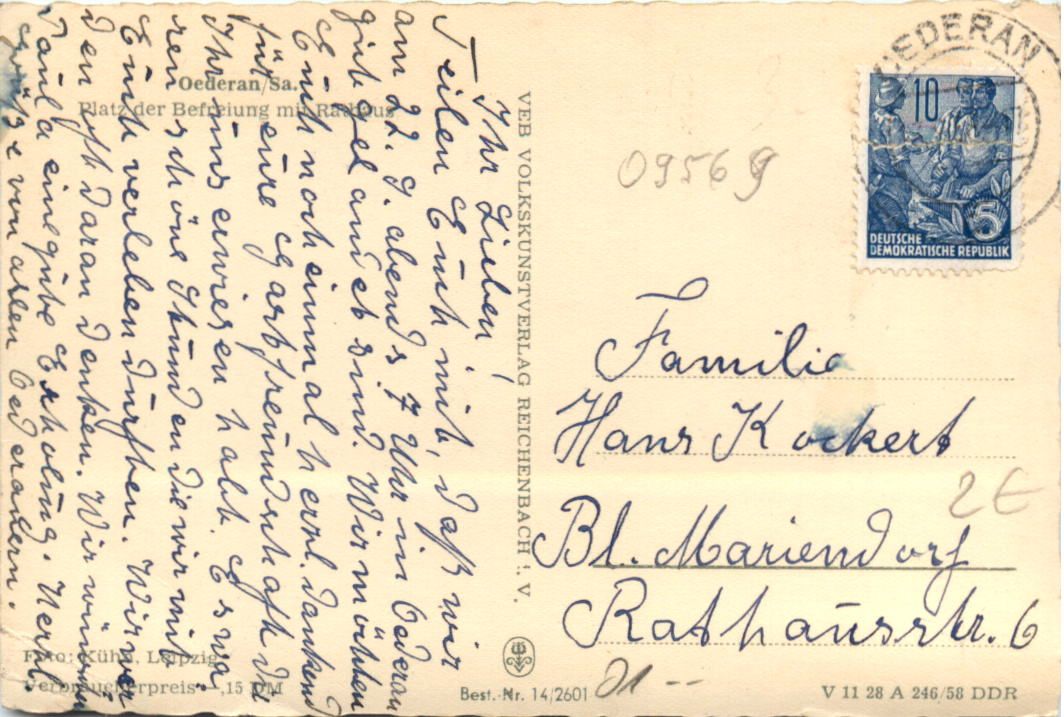 Ihr Lieben!
Teilen Euch mit, daß wir
am 22. d. abends 7 Uhr in Oederan
gut gelandet sind. Wir möchten
Euch noch einmal herzl. danken
für eure Gastfreundschaft die
Ihr uns erwiesen habt. Es wa
ren schöne Stunden die wir mit
Euch verleben durften. Wir wer
den oft daran denken. Wir wünschen
Paula eine gute Erholung. Herzl.
Grüße von allen Oederanern.
Oederan/Sa.
Platz der Befreiung mit Rathaus
Foto: Kühn, Leipzig
Verbraucherpreis -,15 DM
VEB VOLKSKUNSTVERLAG REICHENBACH i. V.
Best.-Nr. 14/2601
OEDERAN
10
5
DEUTSCHE
DEMOKRATISCHE REPUBLIK
09569
Familie
Hans Kockert
2€
Bl. Mariendorf
Rathausstr. 6
01--
V 11 28 A 246/58 DDR